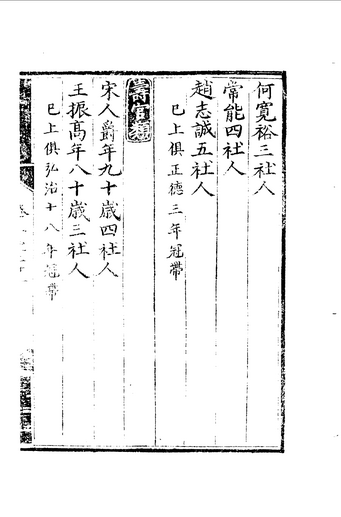 何寬裕三社人
常能四社人
趙志誠五社人
已上俱正德三年冠帶
壽官類
宋人爵年九十歲四社人
王振髙年八十歲三社人
已上俱弘治十八年冠帶